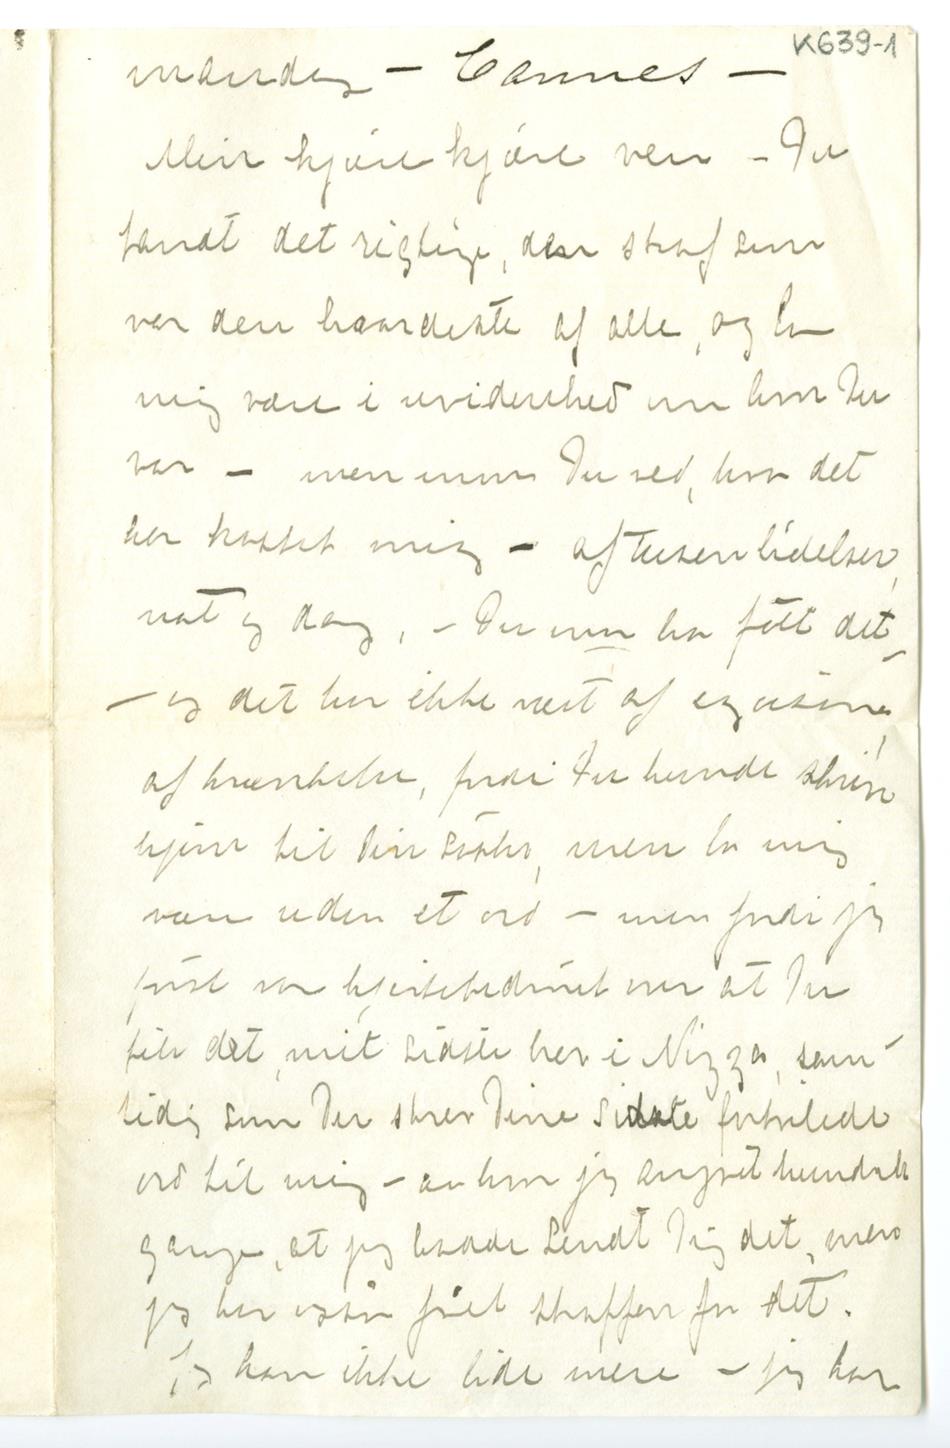 K639-1
mandag – Cannes –
Min kjære kjære ven – Du
fandt det rigtige, den straf som
var den haardeste af alle, og la
mig være i uvidenhed om hvor Du
var – men Du ved, hva det
har kostet mig – af tusen lidelser,
nat og dag, – Du har fått det
– og det har ikke vært af egoisme,
af krænkelse, fordi Du kunde skrive
hjem til Din søster, men la mig
være uden et ord – men fordi jeg
først var hjertebedrøvet over at Du
fik det, mit sidste brev i Nizza, sam-
tidig som Du skrev Dine sidste fortvilede
ord til mig – au hvor jeg angret hundrede
gange, at jeg hadde sendt Dig det, men
jeg har også fået straffen for det.
Jeg kan ikke lide mere – jeg har